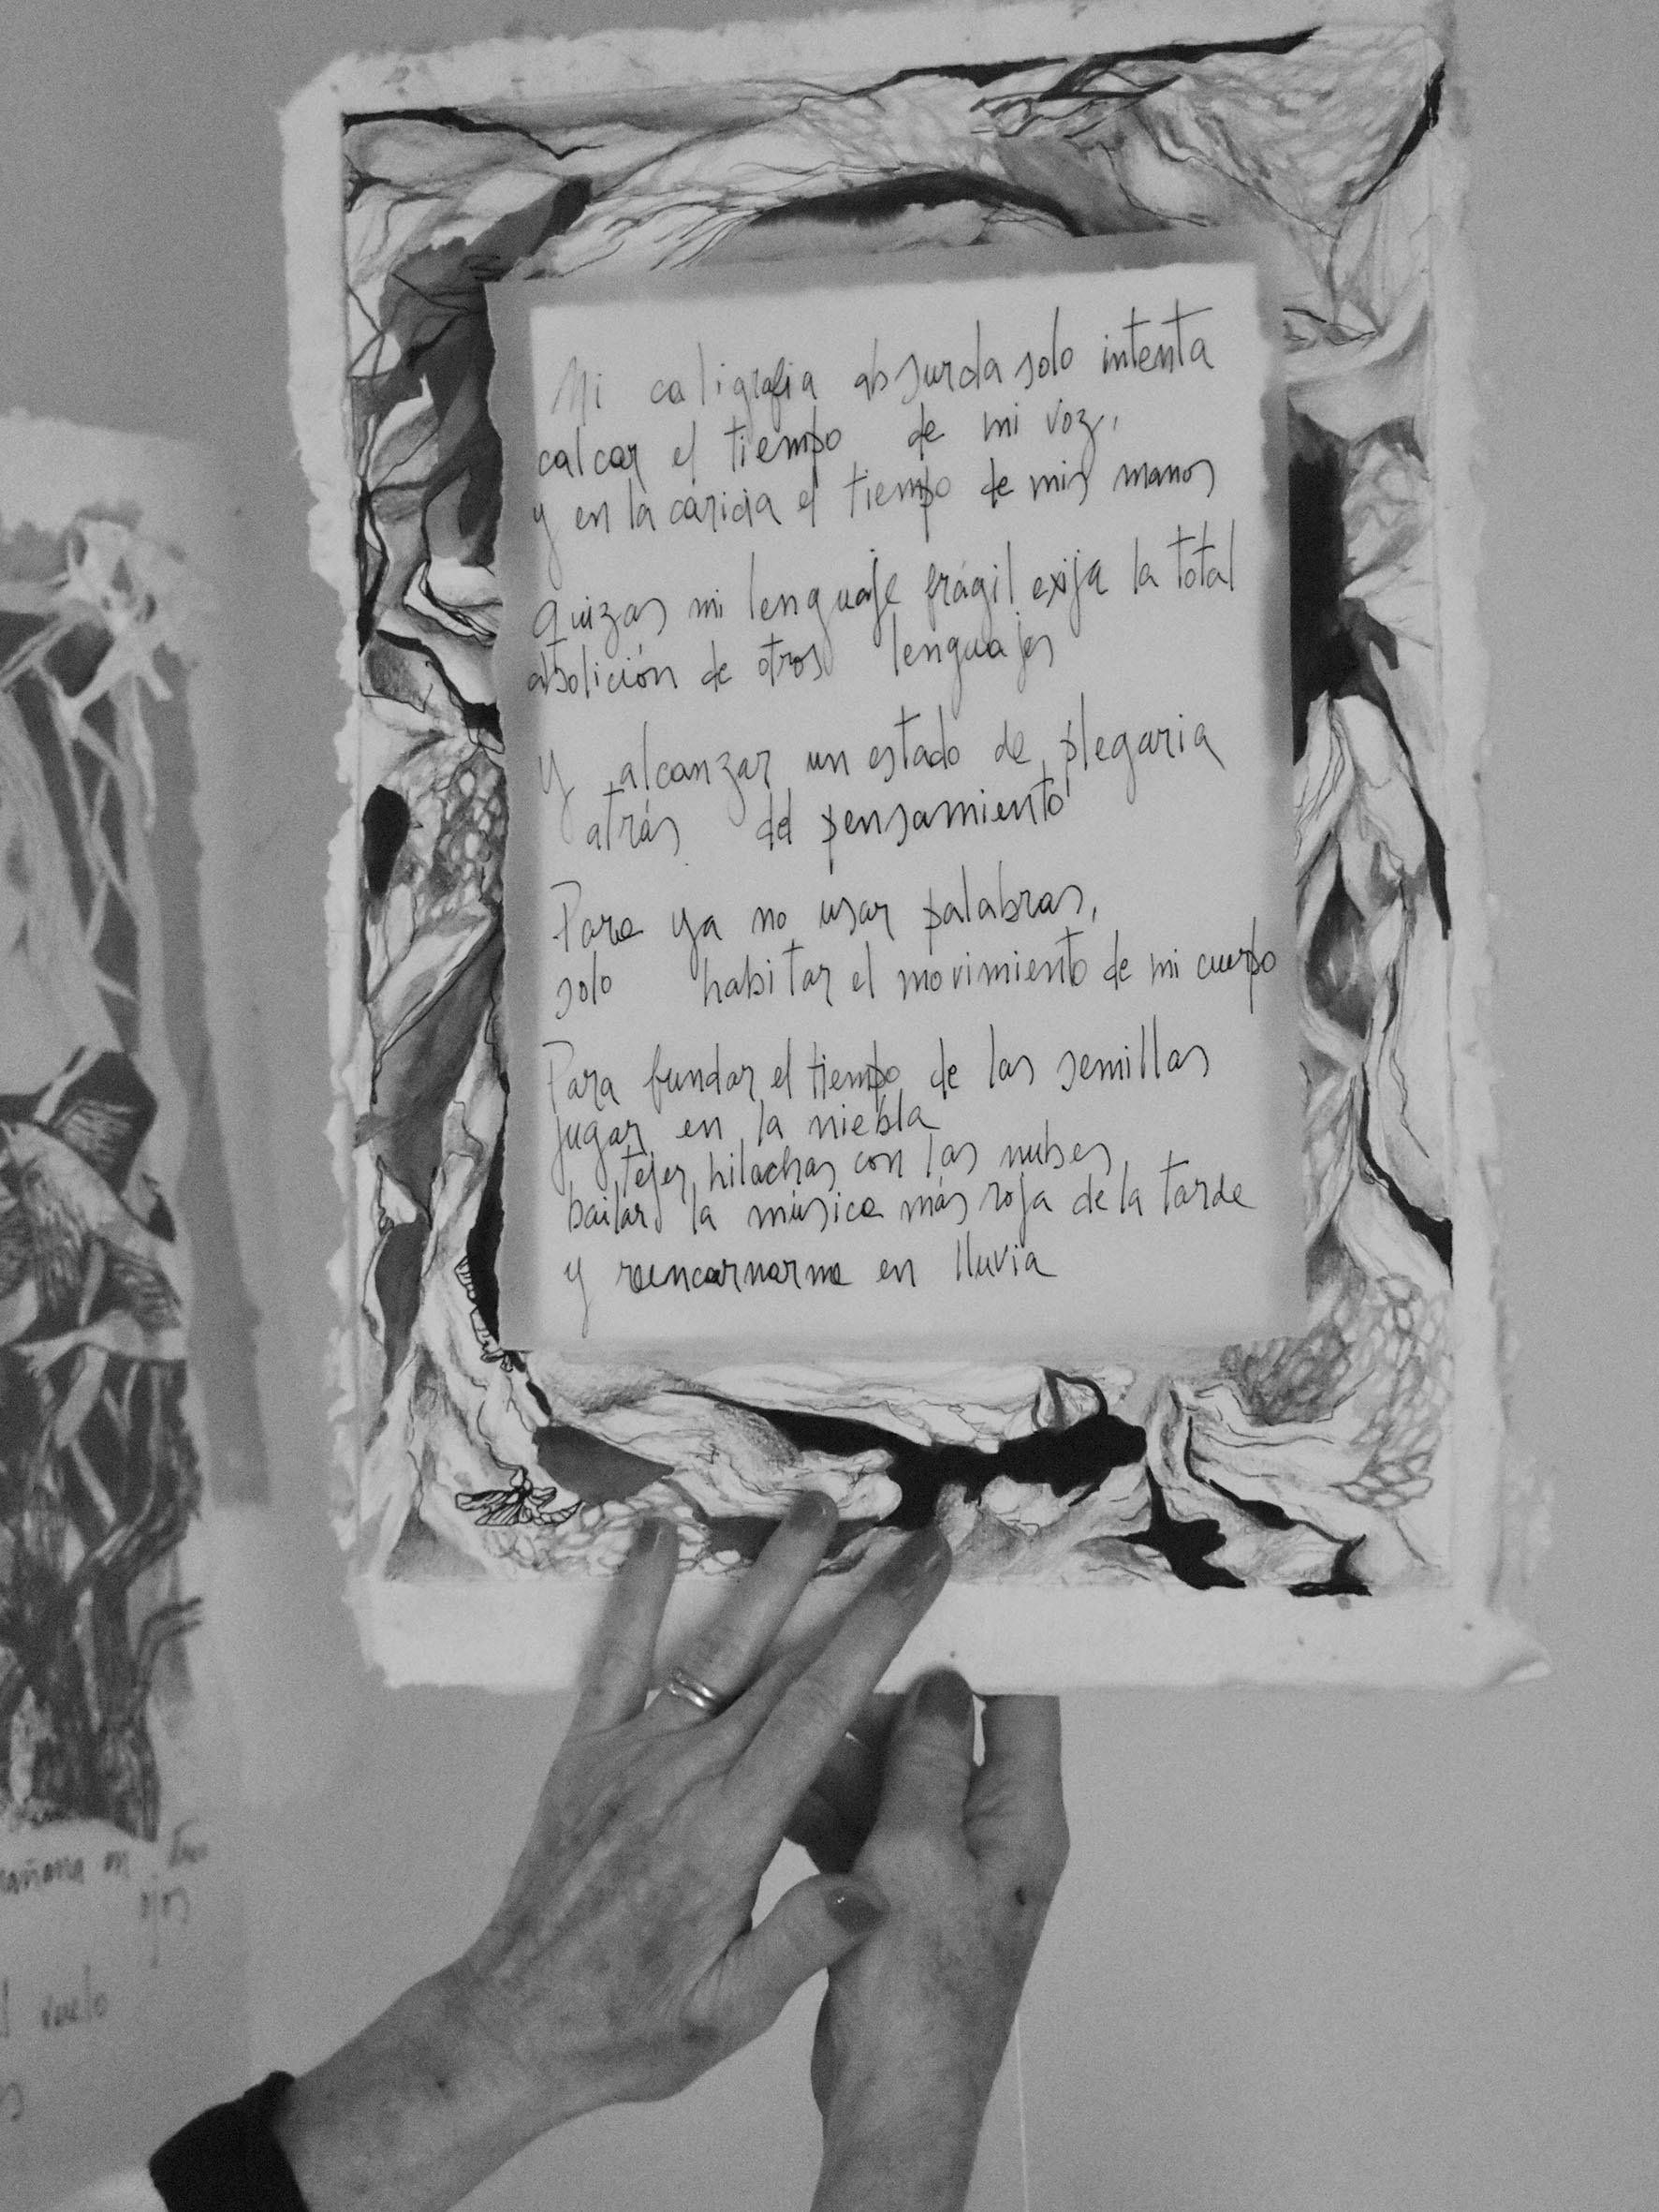 Mi caligrafia absurda solo intenta
calcar el tiempo de mi voz,
y en la caricia el tiempo de mis manos
quizas mi lenguaje frágil exija la total
abolición de otros lenguajes
y alcanzar un estado de plegaria
atrás del pensamiento
Para ya no usar palabras,
solo habitar el movimiento de mi cuerpo
Para fundar el tiempo de las semillas
jugar en la niebla
tejer hilachas con las nubes,
bailar la música más roja de la tarde
y reencarnarme en lluvia
mañana en
ojos
vuelo